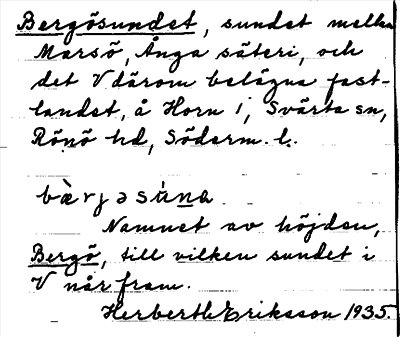 Bergösundet, sundet mellan
Marsö, Ånga säteri, och
det V därom belägna fast-
landet, å Horn i, Svärta sn,
Rönö hd, Söderm. l.
bæ̀rjəsúna
Namnet av höjden,
Bergö, till vilken sundet i
V når fram.
Herbert Eriksson 1935.